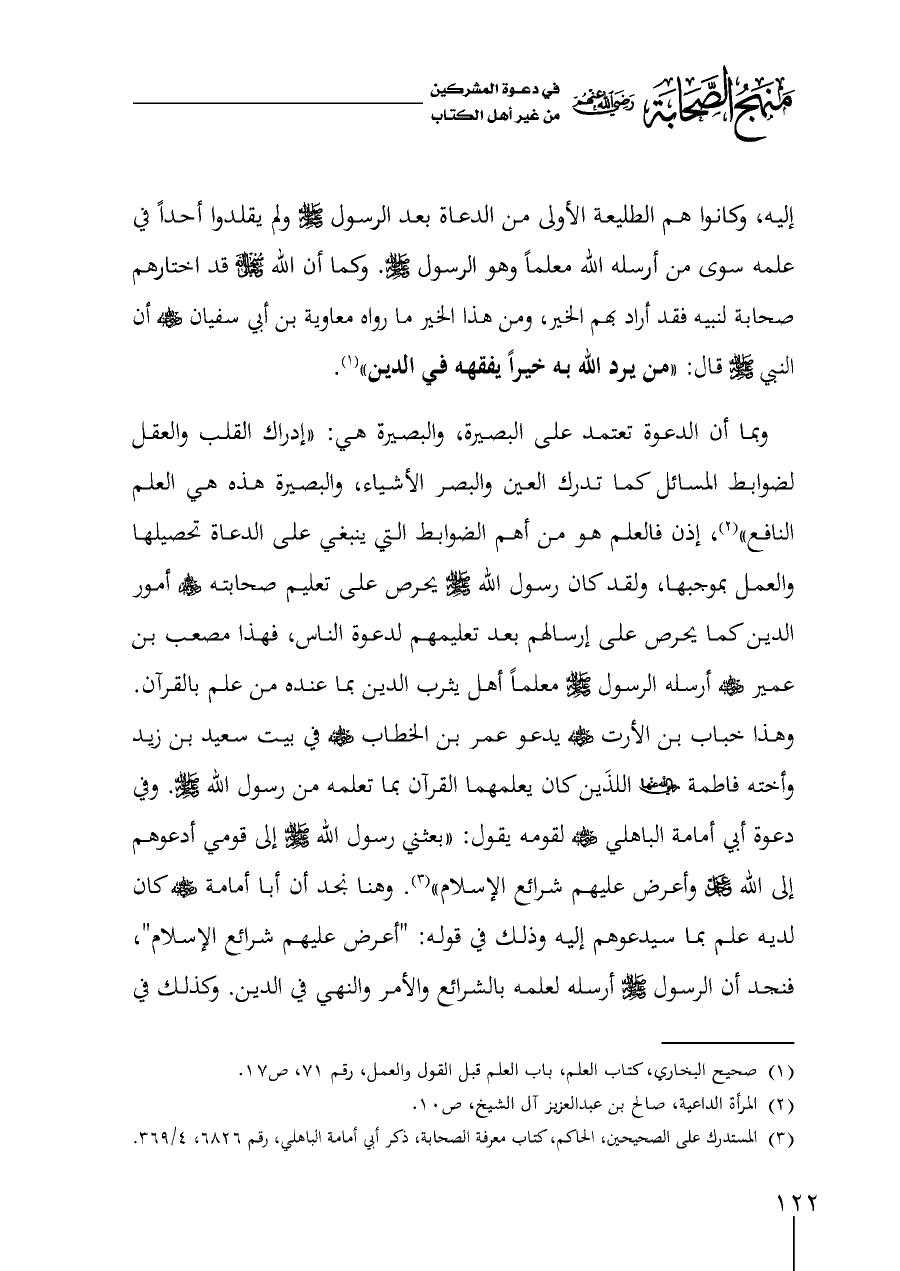 منهج الصحابة رضي الله عنهم في دعوة المشركين
من غير أهل الكتاب
إليه، وكانوا هم الطليعة الأولى من الدعاة بعد الرسول ﷺ ولم يقلدوا أحداً في
علمه سوى من أرسله الله معلماً وهو الرسول ﷺ. وكما أن الله ﷻ قد اختارهم
صحابة لنبيه فقد أراد بهم الخير، ومن هذا الخير ما رواه معاوية بن أبي سفيان رضي الله عنه أن
النبي ﷺ قال: «من يرد الله به خيراً يفقهه في الدين»(١).
وبما أن الدعوة تعتمد على البصيرة، والبصيرة هي: «إدراك القلب والعقل
لضوابط المسائل كما تدرك العين والبصر الأشياء، والبصيرة هذه هي العلم
النافع»(٢)، إذن فالعلم هو من أهم الضوابط التي ينبغي على الدعاة تحصيلها
والعمل بموجبها، ولقد كان رسول الله ﷺ يحرص على تعليم صحابته رضي الله عنهم أمور
الدين كما يحرص على إرسالهم بعد تعليمهم لدعوة الناس، فهذا مصعب بن
عمير رضي الله عنه أرسله الرسول ﷺ معلماً أهل يثرب الدين بما عنده من علم بالقرآن.
وهذا خباب بن الأرت رضي الله عنه يدعو عمر بن الخطاب رضي الله عنه في بيت سعيد بن زيد
وأخته فاطمة رضي الله عنهما اللذَين كان يعلمهما القرآن بما تعلمه من رسول الله ﷺ. وفي
دعوة أبي أمامة الباهلي رضي الله عنه لقومه يقول: «بعثني رسول الله ﷺ إلى قومي أدعوهم
إلى الله عز وجل وأعرض عليهم شرائع الإسلام»(٣). وهنا نجد أن أبا أمامة رضي الله عنه كان
لديه علم بما سيدعوهم إليه وذلك في قوله: "أعرض عليهم شرائع الإسلام"،
فنجد أن الرسول ﷺ أرسله لعلمه بالشرائع والأمر والنهي في الدين. وكذلك في
(١) صحيح البخاري، كتاب العلم، باب العلم قبل القول والعمل، رقم ٧١، ص١٧.
(٢) المرأة الداعية، صالح بن عبدالعزيز آل الشيخ، ص١٠.
(٣) المستدرك على الصحيحين، الحاكم، كتاب معرفة الصحابة، ذكر أبي أمامة الباهلي، رقم ٦٨٢٦، ٣٦٩/٤.
١٢٢